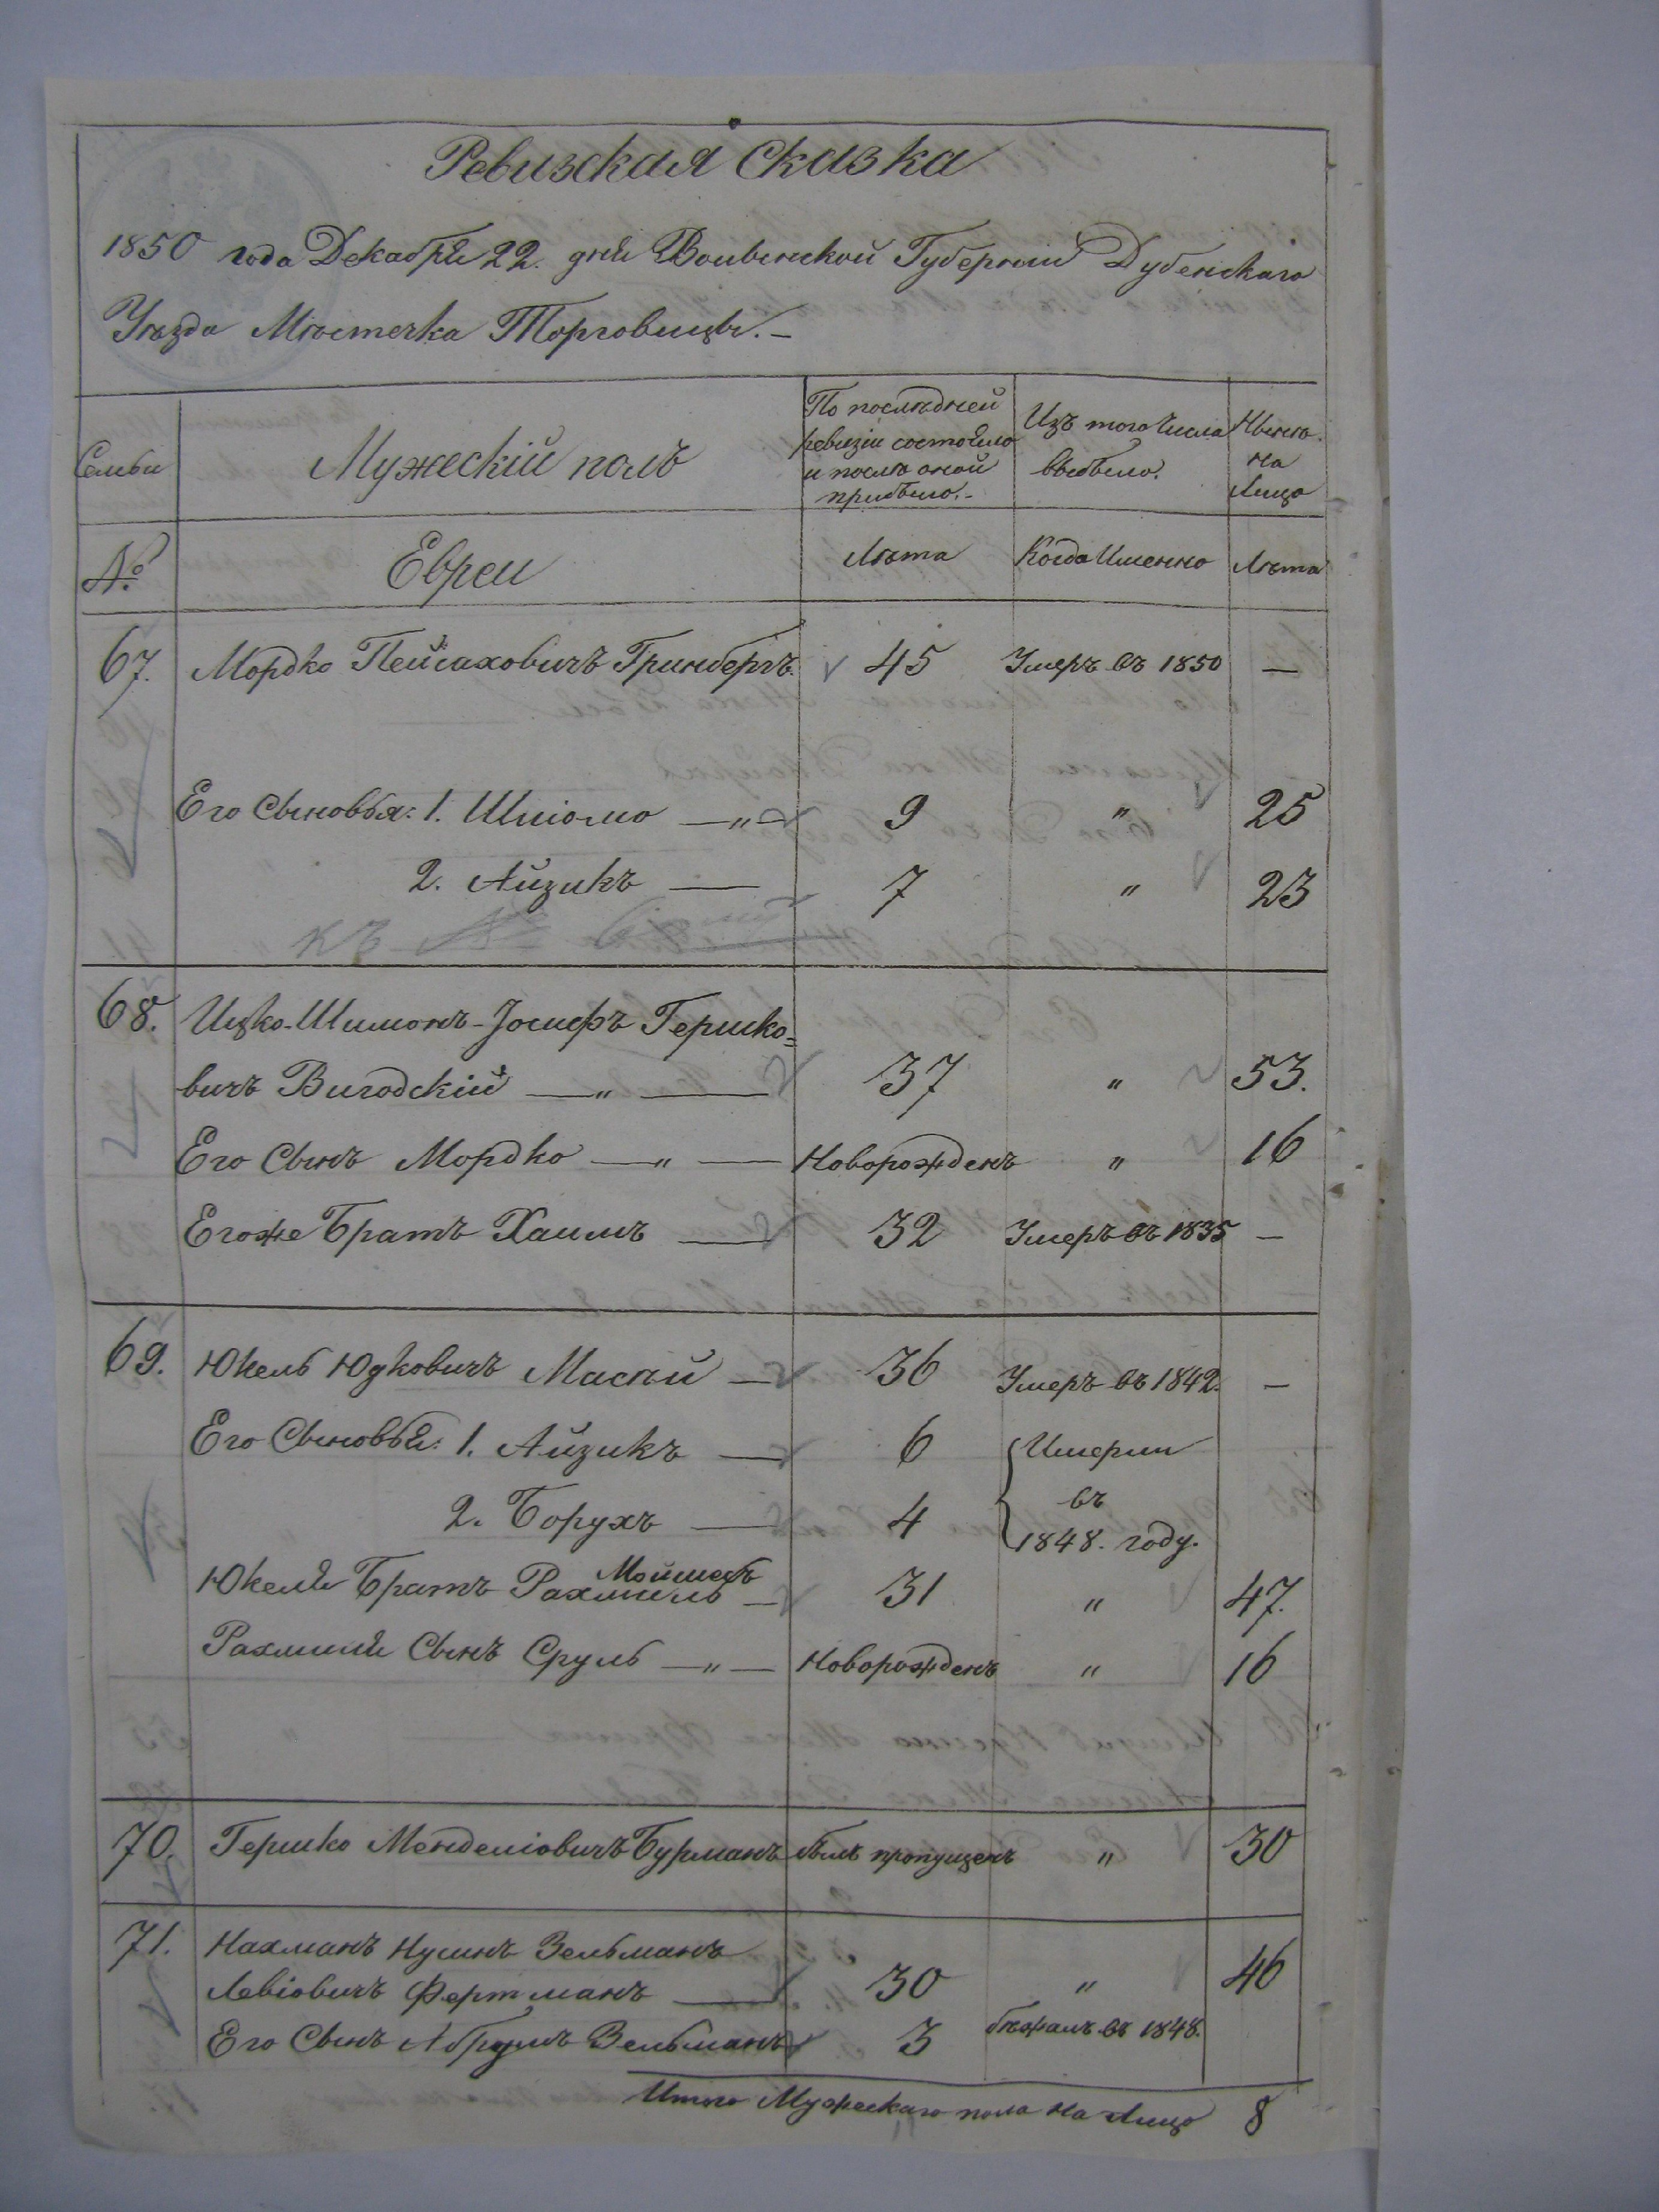 Ревизская Сказка
1850 года Декабря 22. дня Волынской Губернии Дубенскаго
Уезда Местечка Торговицы. –
Семьи
Мужескій полъ
По последней ревизіи состояло и после оной прибыло. –
Изъ того Числа выбыло.
Ныне. на Лицо
№
Евреи
Лета
Когда Именно
Лета
67. Мордко Пейсаховичъ Гринбергъ. 45 Умеръ въ 1850 —
Его Сыновья: 1. Шліомо — " — 9 " 25
2. Айзикъ — 7 " 23
къ №
68. Ицко-Шимонъ-Іосифъ Гершко=
вичъ Вигодскій — " — 37 " 53.
Его Сынъ Мордко — " — Новорожденъ " 16
Егоже Братъ Хаимъ — 32 Умеръ въ 1835 —
69. Юкель Юдковичъ Маслій — 36 Умеръ въ 1842. —
Его Сыновья: 1. Айзикъ — 6 { Умерли
2. Борухъ — 4 въ 1848. году.
Мойшеъ
Юкеля Братъ Рахмиль — 31 " 47.
Рахмиля Сынъ Сруль — " — Новорожденъ " 16
70. Гершко Менделіовичъ Бурманъ былъ пропущенъ " 30
71. Нахманъ Нусинъ Зельманъ
Левіовичъ Фертманъ — 30 " 46
Его Сынъ Абрумъ Зельманъ 3 бежалъ въ 1848.
Итого Мужескаго пола на Лицо 8